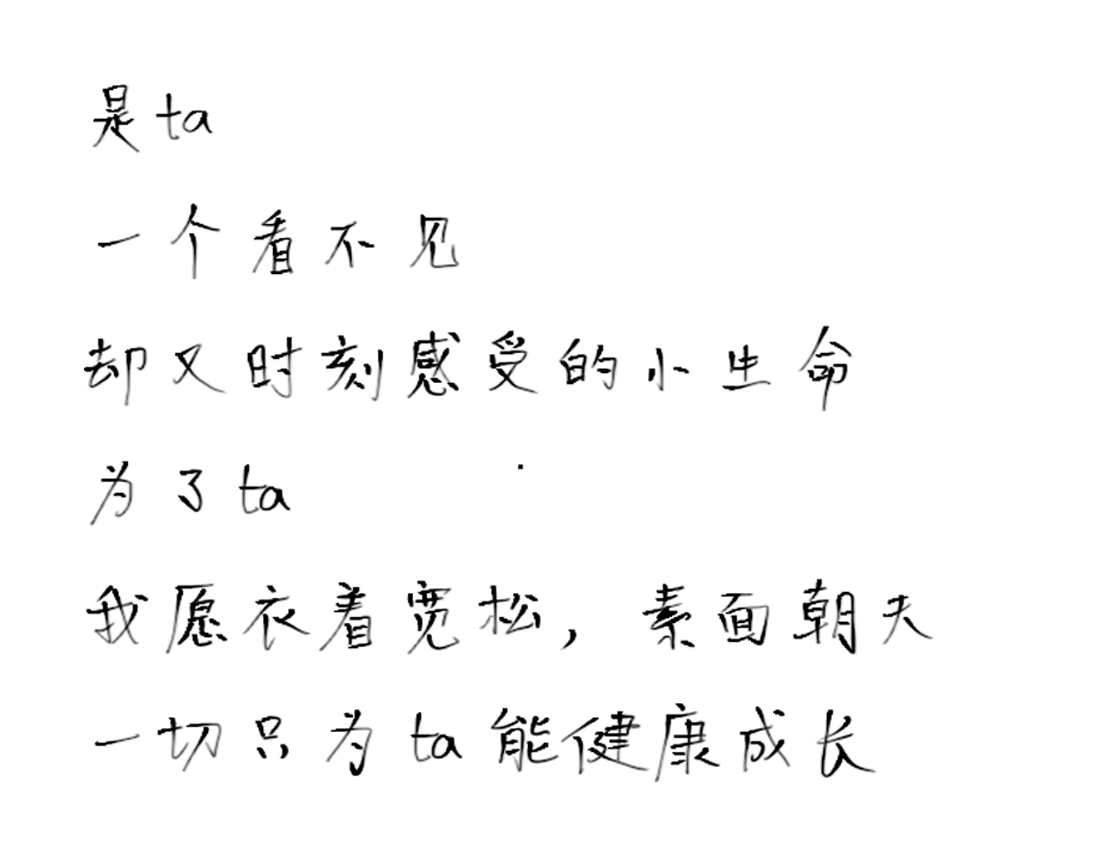 是ta
一个看不见
却又时刻感受的小生命
为了ta
我愿衣着宽松，素面朝天
一切只为ta能健康成长